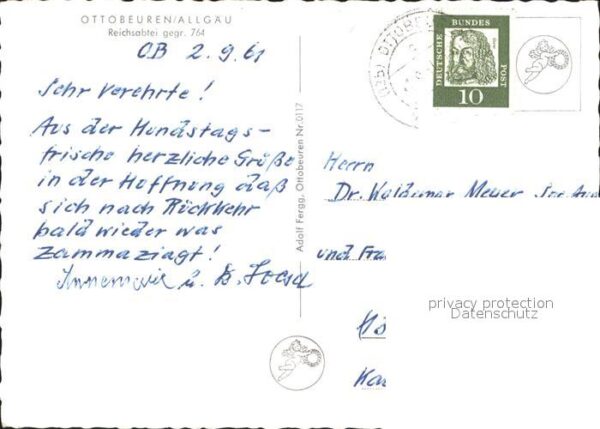 OTTOBEUREN/ALLGÄU
Reichsabtei gegr. 764
OB 2.9.61
Sehr verehrte!
Aus der Hundstags-
frische herzliche Grüße
in der Hoffnung daß
sich nach Rückkehr
bald wieder was
zammaziagt!
u. B.
Adolf Fergg, Ottobeuren Nr. 0117
DEUTSCHE BUNDES POST
10
Herrn
Dr. Waldemar Meuer
und Fra
privacy protection
Datenschutz